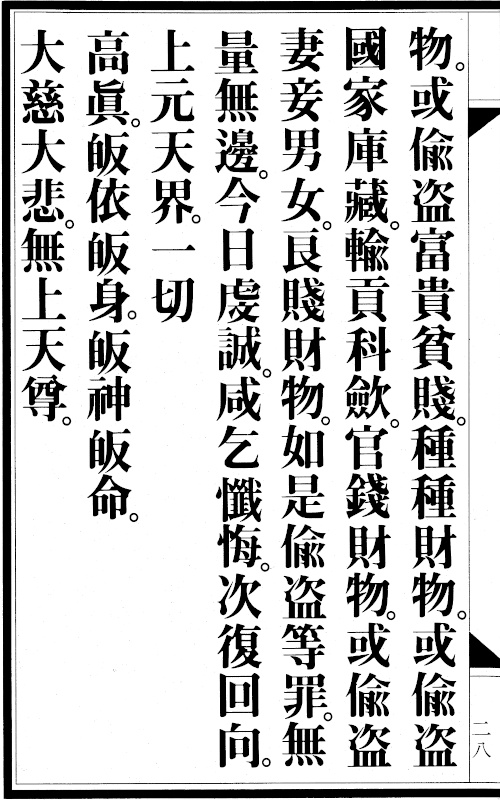 物。或偸盜富貴貧賤。種種財物。或偸盜
國家庫藏。輸貢科歛。官錢財物。或偸盜
妻妾男女。良賤財物。如是偸盜等罪。無
量無邊。今日虔誠。咸乞懺悔。次復回向。
上元天界。一切
高眞。皈依皈身。皈神皈命。
大慈大悲。無上天尊。
二八